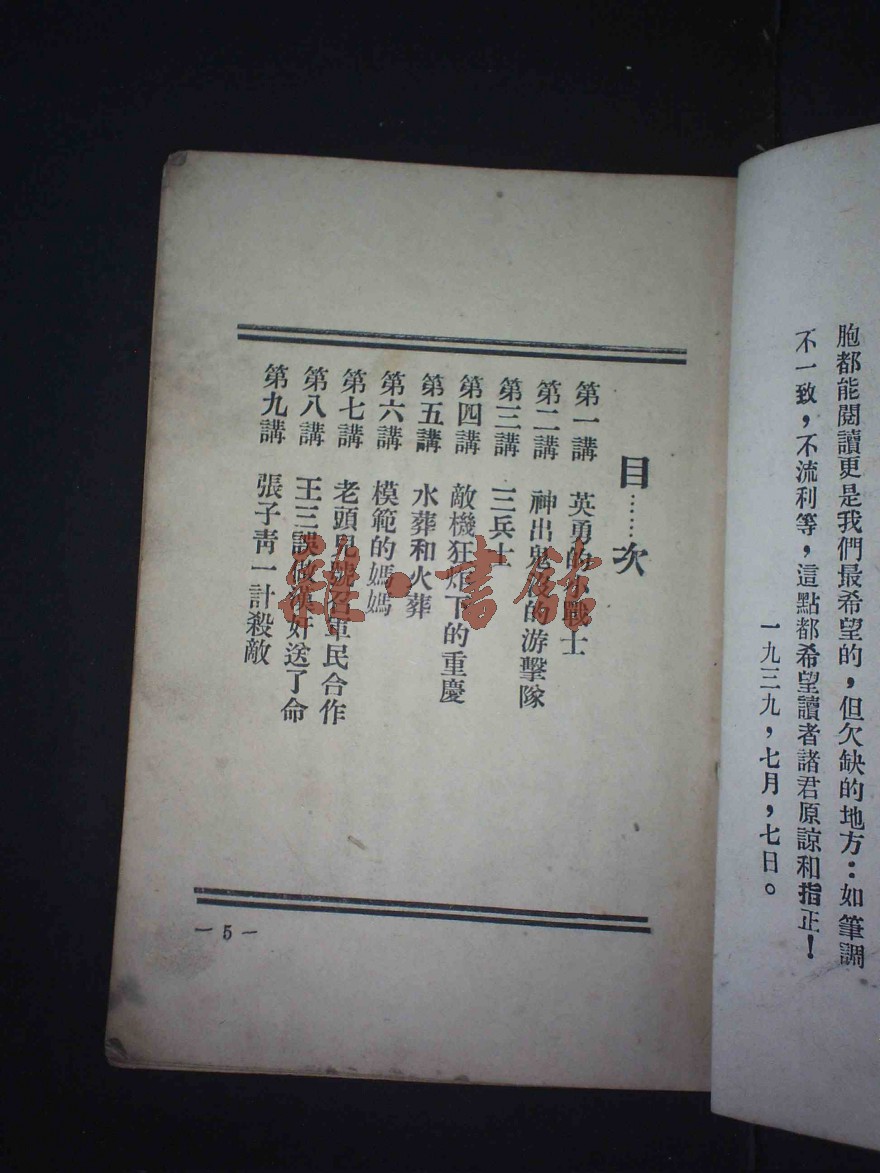 胞都能閱讀更是我們最希望的，但欠缺的地方：如筆調
不一致，不流利等，這點都希望讀者諸君原諒和指正！
一九三九，七月，七日。
目……次
第一講 英勇的小戰士
第二講 神出鬼沒的游擊隊
第三講 三兵士
第四講 敵機狂炸下的重慶
第五講 水葬和火葬
第六講 模範的媽媽
第七講 老頭兒號召軍民合作
第八講 王三誤做漢奸送了命
第九講 張子靑一計殺敵
— 5 —
雜·書館